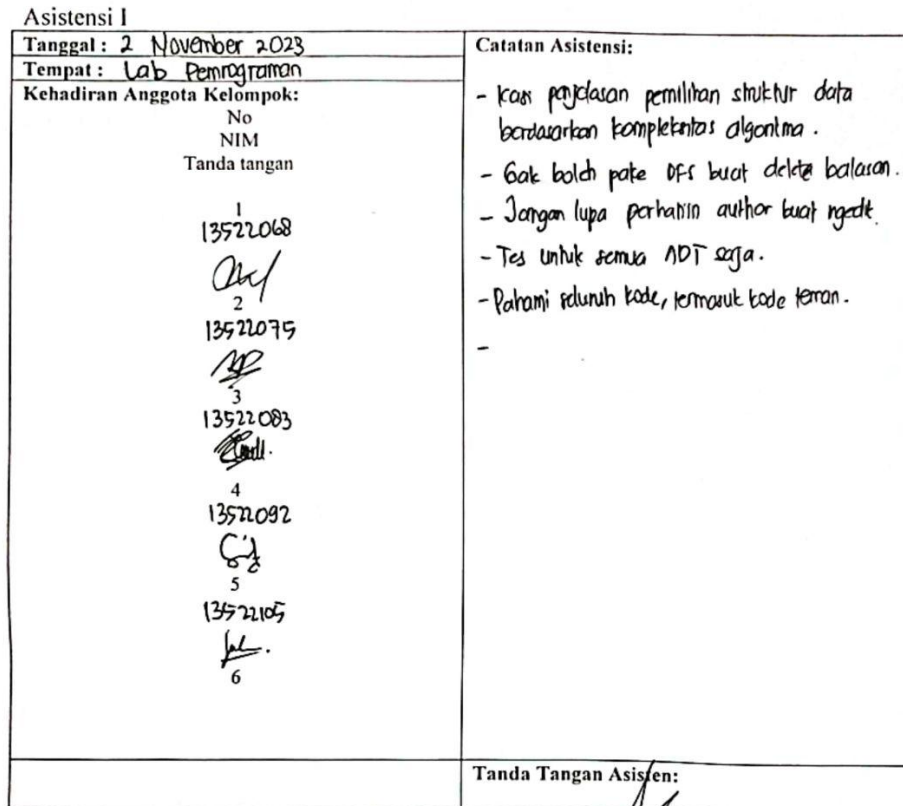 Asistensi I
Tanggal : 2 November 2023
Tempat : Lab Pemrograman
Kehadiran Anggota Kelompok:
No
NIM
Tanda tangan
1
13522068
2
13522075
3
13522083
4
13522092
5
13522105
6
Catatan Asistensi:
- Kasi penjelasan pemilihan struktur data
berdasarkan kompleksitas algoritma.
- Gak boleh pake DFS buat delete balasan.
- Jangan lupa perhatiin author buat ngedit.
- Tes untuk semua ADT saja.
- Pahami seluruh kode, termasuk kode teman.
-
Tanda Tangan Asisten: